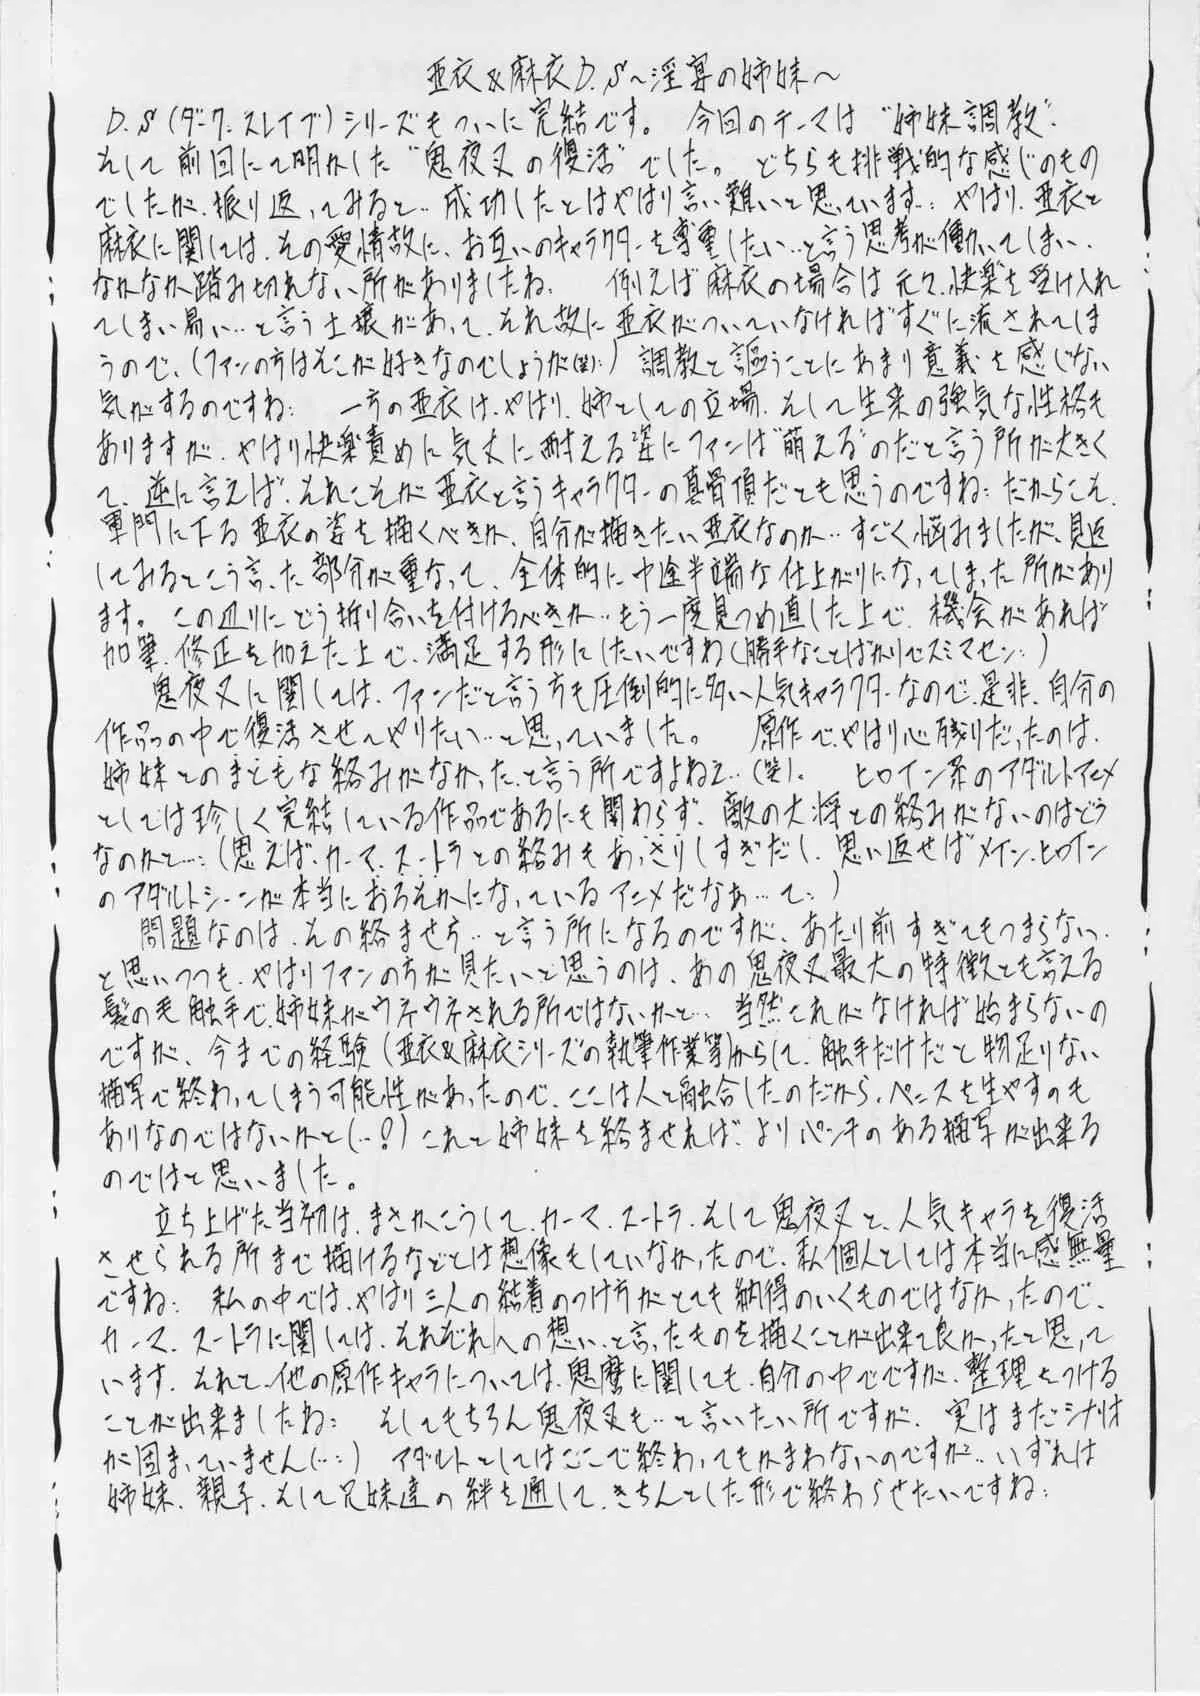 亜衣&麻衣D.S～淫宴の姉妹～
D.S(ダーク.スレイブ)シリーズもついに完結です。 今回のテーマは“姉妹調教”.
そして前回にて明かした“鬼夜叉の復活”でした。 どちらも挑戦的な感じのもの
でしたが、振り返ってみると‥成功したとはやはり言い難いと思っています‥: やはり、亜衣と
麻衣に関しては、その愛情故に、お互いのキャラクターを尊重したい‥と言う思考が働いてしまい、
なかなか踏み切れない所がありましたね、 例えば麻衣の場合は元々、快楽を受け入れ
てしまい易い‥と言う土壌があって、それ故に亜衣がついていなければすぐに流されてしま
うので、(ファンの方はそこが好きなのでしょうが(笑):)調教と謳うことにあまり意義を感じない
気がするのですね: 一方の亜衣は、やはり、姉としての立場、そして生来の強気な性格も
ありますが、やはり快楽責めに気丈に耐える姿にファンは“萌える”のだと言う所が大きく
て、逆に言えば、それこそが亜衣と言うキャラクターの真骨頂だとも思うのですね: だからこそ、
軍門に下る亜衣の姿を描くべきか、自分が描きたい亜衣なのか‥すごく悩みましたが、見返
してみるとこう言った部分が重なって、全体的に中途半端な仕上がりになってしまった所があり
ます。 この辺りにどう折り合いを付けるべきか‥もう一度見つめ直した上で、機会があれば
加筆、修正を加えた上で、満足する形にしたいですね(勝手なことばかりでスミマセン:)
鬼夜叉に関しては、ファンだと言う方も圧倒的に多い人気キャラクターなので、是非、自分の
作品の中で復活させてやりたい‥と思っていました。 原作で、やはり心残りだったのは、
姉妹とのまともな絡みがなかった、と言う所ですよねェ‥(笑)。 ヒロイン系のアダルトアニメ
としては珍しく完結している作品であるにも関わらず、敵の大将との絡みがないのはどう
なのかと…:(思えば、カーマ、スートラとの絡みもあっさりしすぎだし、思い返せばメイン、ヒロイン
のアダルトシーンが本当におろそかになっているアニメだなぁ…て:)
問題なのは、その絡ませ方‥と言う所になるのですが、あたり前すぎてもつまらないっ、
と思いつつも、やはりファンの方が見たいと思うのは、あの鬼夜叉最大の特徴とも言える
髪の毛触手で、姉妹がウネウネされる所ではないかと‥ 当然これがなければ始まらないの
ですが、今までの経験(亜衣&麻衣シリーズの執筆作業等)からして、触手だけだと物足りない
描写で終わってしまう可能性があったので、ここは人と融合したのだから、ペニスを生やすのも
ありなのではないかと(‥?)これと姉妹を絡ませれば、よりパンチのある描写が出来る
のではと思いました。
立ち上げた当初は、まさかこうして、カーマ、スートラ、そして鬼夜叉と、人気キャラを復活
させられる所まで描けるなどとは想像もしていなかったので、私個人としては本当に感無量
ですね: 私の中では、やはり三人の結着のつけ方がとても納得のいくものではなかったので、
カーマ、スートラに関しては、それぞれへの想い、と言ったものを描くことが出来て良かったと思って
います、それと、他の原作キャラについては、鬼麿に関しても、自分の中でですが、整理をつける
ことが出来ましたね: そしてもちろん鬼夜叉も‥と言いたい所ですが、実はまだシナリオ
が固まっていません(…:) アダルトとしてはここで終わってもかまわないのですが‥いずれは
姉妹、親子、そして兄妹達の絆を通して、きちんとした形で終わらせたいですね: